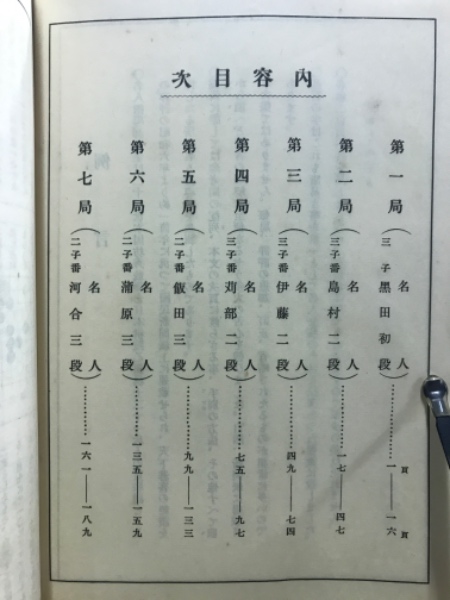 內容目次
第一局(名人 三子黒田初段)…………一頁——一六頁
第二局(名人 三子番島村二段)…………一七——四七
第三局(名人 三子番伊藤二段)…………四九——七四
第四局(名人 三子番苅部二段)…………七五——九七
第五局(名人 二子番飯田三段)…………九九——一三三
第六局(名人 二子番蒲原三段)…………一三五——一五九
第七局(名人 二子番河合三段)…………一六一——一八九